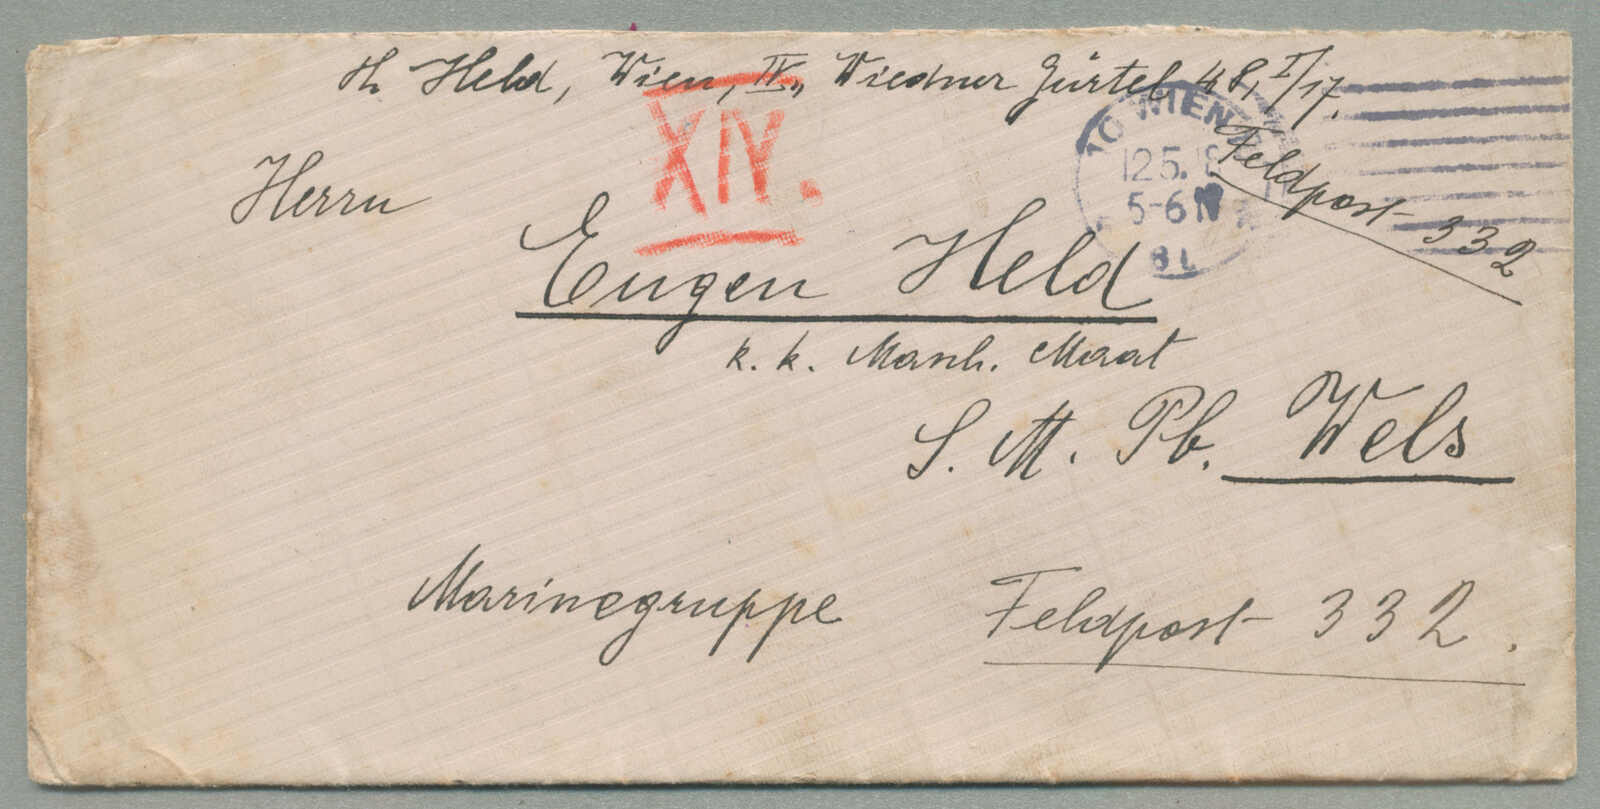 Held, Wien, IV., Wiedner Gürtel 48, I/17.
XIV.
10 WIEN
12 5. 18
5-6 N
Feldpost 332
Herrn
Eugen Held
k. k. Masch. Maat
S. M. Pb. Wels
Marinegruppe Feldpost 332.